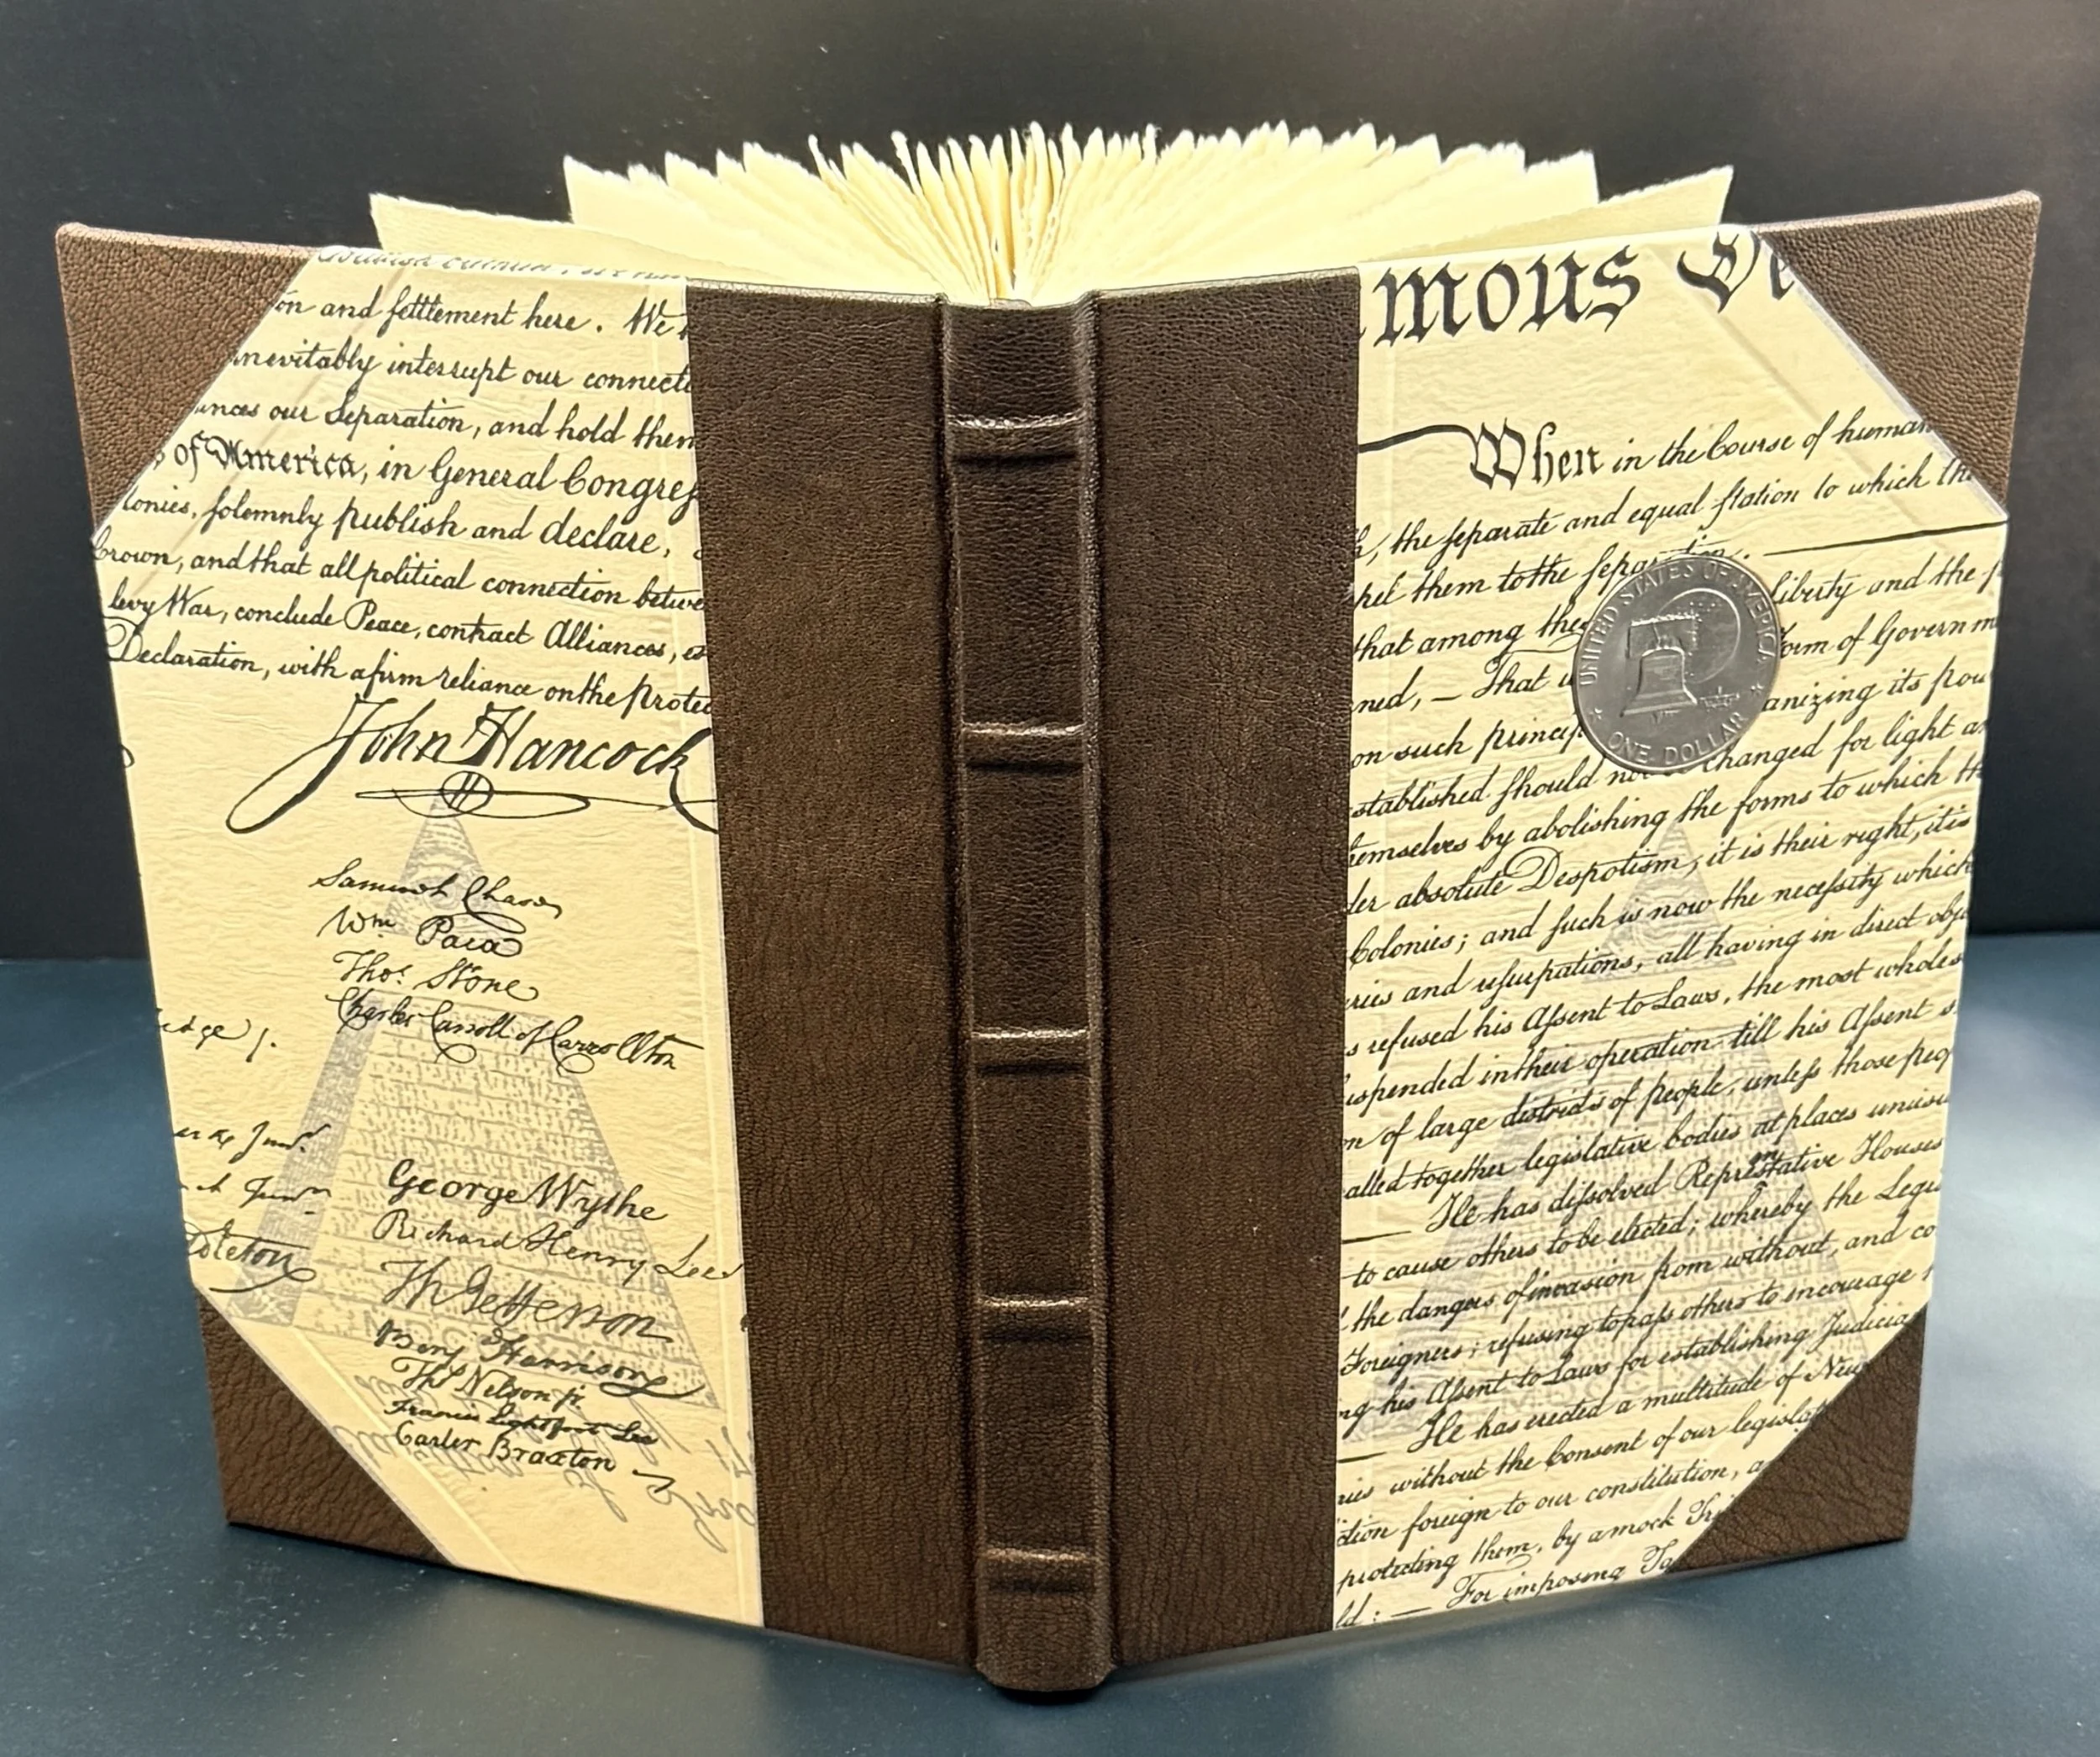 on and fettlement here. We
inevitably interrupt our connecti
ances our Separation, and hold them
of America, in General Congress
lonies, folemnly publish and declare,
Crown, and that all political connection betwe
levy War, conclude Peace, contract Alliances, es
Declaration, with a firm reliance on the protec
John Hancock
Samuel Chase
Wm. Paca
Thos. Stone
Charles Carroll of Carrollton
George Wythe
Richard Henry Lee
Th Jefferson
Benj Harrison
Thos Nelson jr.
Francis Lightfoot Lee
Carter Braxton
mous De
When in the Course of human
, the feparate and equal ftation to which the
pel them to the feparation.
liberty and the p
that among thes
orm of Governm
ned, — That w
anizing its pow
on such princip
stablished fhould not be changed for light an
hemselves by abolishing the forms to which th
der absolute Despotism, it is their right, it is
Colonies; and fuch is now the necefsity which
uries and ufurpations, all having in direct obje
s refused his Afsent to Laws, the most wholes
uspended in their operation till his Afsent s
on of large districts of people, unlefs those peop
alled together legislative bodies at places unusu
— He has difsolved Representative Houses
to cause others to be elected; whereby the Legis
the dangers of invasion from without, and co
Foreigners; refusing to pafs others to encourage
ng his Afsent to Laws for establishing Judicia
— He has erected a multitude of New
ries without the Consent of our legislat
ction foreign to our constitution, a
protecting them, by a mock Tri
ld: — For imposing Ta
UNITED STATES OF AMERICA
ONE DOLLAR